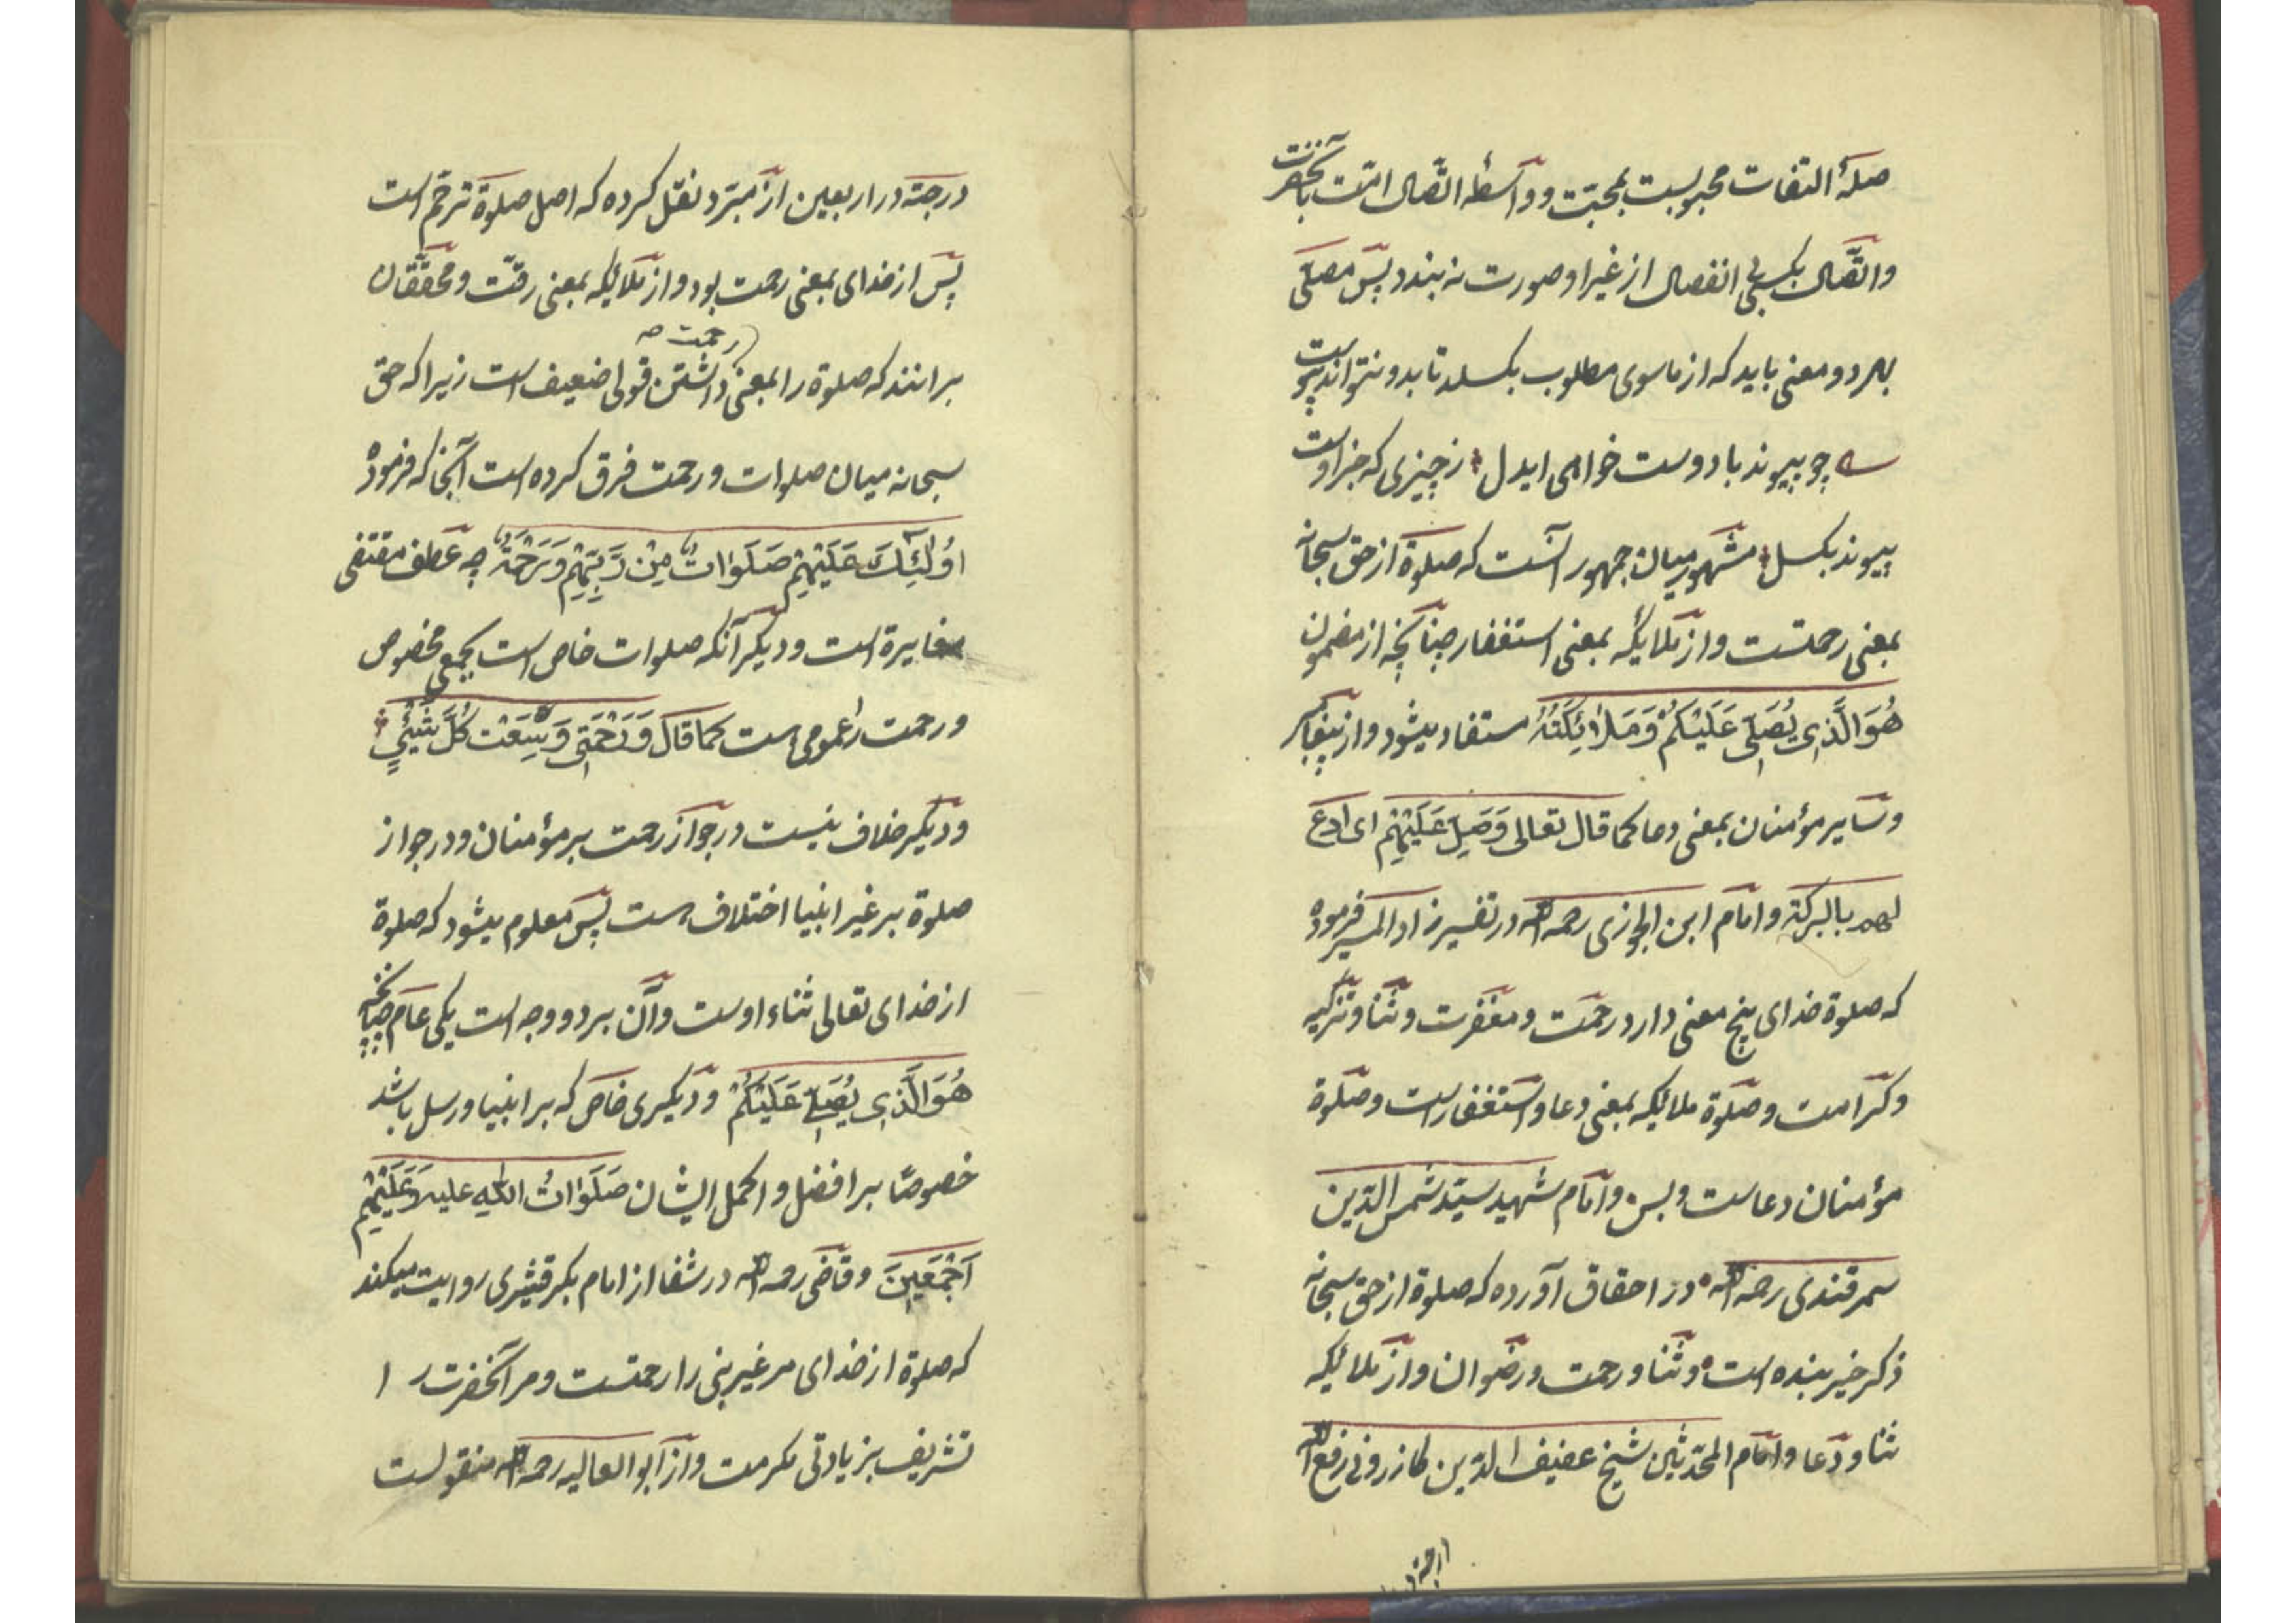 صلهٔ التفات محبوبست بمحبّت وواسطهٔ اتّصال امّت بآنحضرت
واتّصال بکسی بی انفصال از غیر او صورت نه بندد پس مصلّی
بهر دو معنی باید که از ماسوی مطلوب بکسلد تا بدو نتواند پیوست
چو پیوند با دوست خواهی ایدل ز چیزی که جز اوست
پیوند بکسل مشهور میان جمهور آنست که صلوة از حق سبحانه
بمعنی رحمتست واز ملایکه بمعنی استغفار چنانچه از مضمون
هُوَ الَّذِی یُصَلِّی عَلَیْکُمْ وَمَلَائِکَتُهُ مستفاد میشود واز پیغامبر
وسایر مؤمنان بمعنی دعا کما قال تعالی وَصَلِّ عَلَیْهِمْ ای ادع
لهم بالبرکة وامام ابن الجوزی رحمه الله در تفسیر زاد المسیر فرموده
که صلوة خدای پنج معنی دارد رحمت ومغفرت وثنا وتزکیه
وکرامت وصلوة ملایکه بمعنی دعا واستغفار است وصلوة
مؤمنان دعاست وبس وامام شهید سیّد شمس الدّین
سمرقندی رحمه الله در احقاق آورده که صلوة از حق سبحانه
ذکر خیر بنده است وثنا ورحمت ورضوان واز ملائیکه
ثنا ودعا وامام المحدّثین شیخ عفیف الدّین کازرونی رفع الله
درجته در اربعین از مبرّد نقل کرده که اصل صلوة ترحّم است
پس از خدای بمعنی رحمت بود واز ملایکه بمعنی رقّت ومحقّقان
رحمت صح
برانند که صلوة را بمعنی داشتن قولی ضعیف است زیرا که حق
سبحانه میان صلوات ورحمت فرق کرده است آنجا که فرموده
اُولٰئِکَ عَلَیْهِمْ صَلَوَاتٌ مِنْ رَبِّهِمْ وَرَحْمَةٌ چه عطف مقتضی
مغایرة است ودیگر آنکه صلوات خاص است بجمعی مخصوص
ورحمت را عمومی است کما قال وَرَحْمَتِی وَسِعَتْ کُلَّ شَیْئٍ
ودیگر خلاف نیست در جواز رحمت بر مؤمنان ودر جواز
صلوة بر غیر انبیا اختلاف است پس معلوم میشود که صلوة
از خدای تعالی ثناء اوست وآن بر دو وجه است یکی عام چنانچه
هُوَ الَّذِی یُصَلِّی عَلَیْکُمْ ودیگری خاص که بر انبیا ورسل باشد
خصوصًا بر افضل واکمل ایشان صَلَوَاتُ اللهِ علیه وَعَلَیْهِمْ
اَجْمَعِینَ وقاضی رحمه الله در شفا از امام بکر قشیری روایت میکند
که صلوة از خدای مر غیر نبی را رحمتست ومر آنحضرت را
تشریف بزیادتی مکرمت واز ابو العالیه رحمه الله منقولست